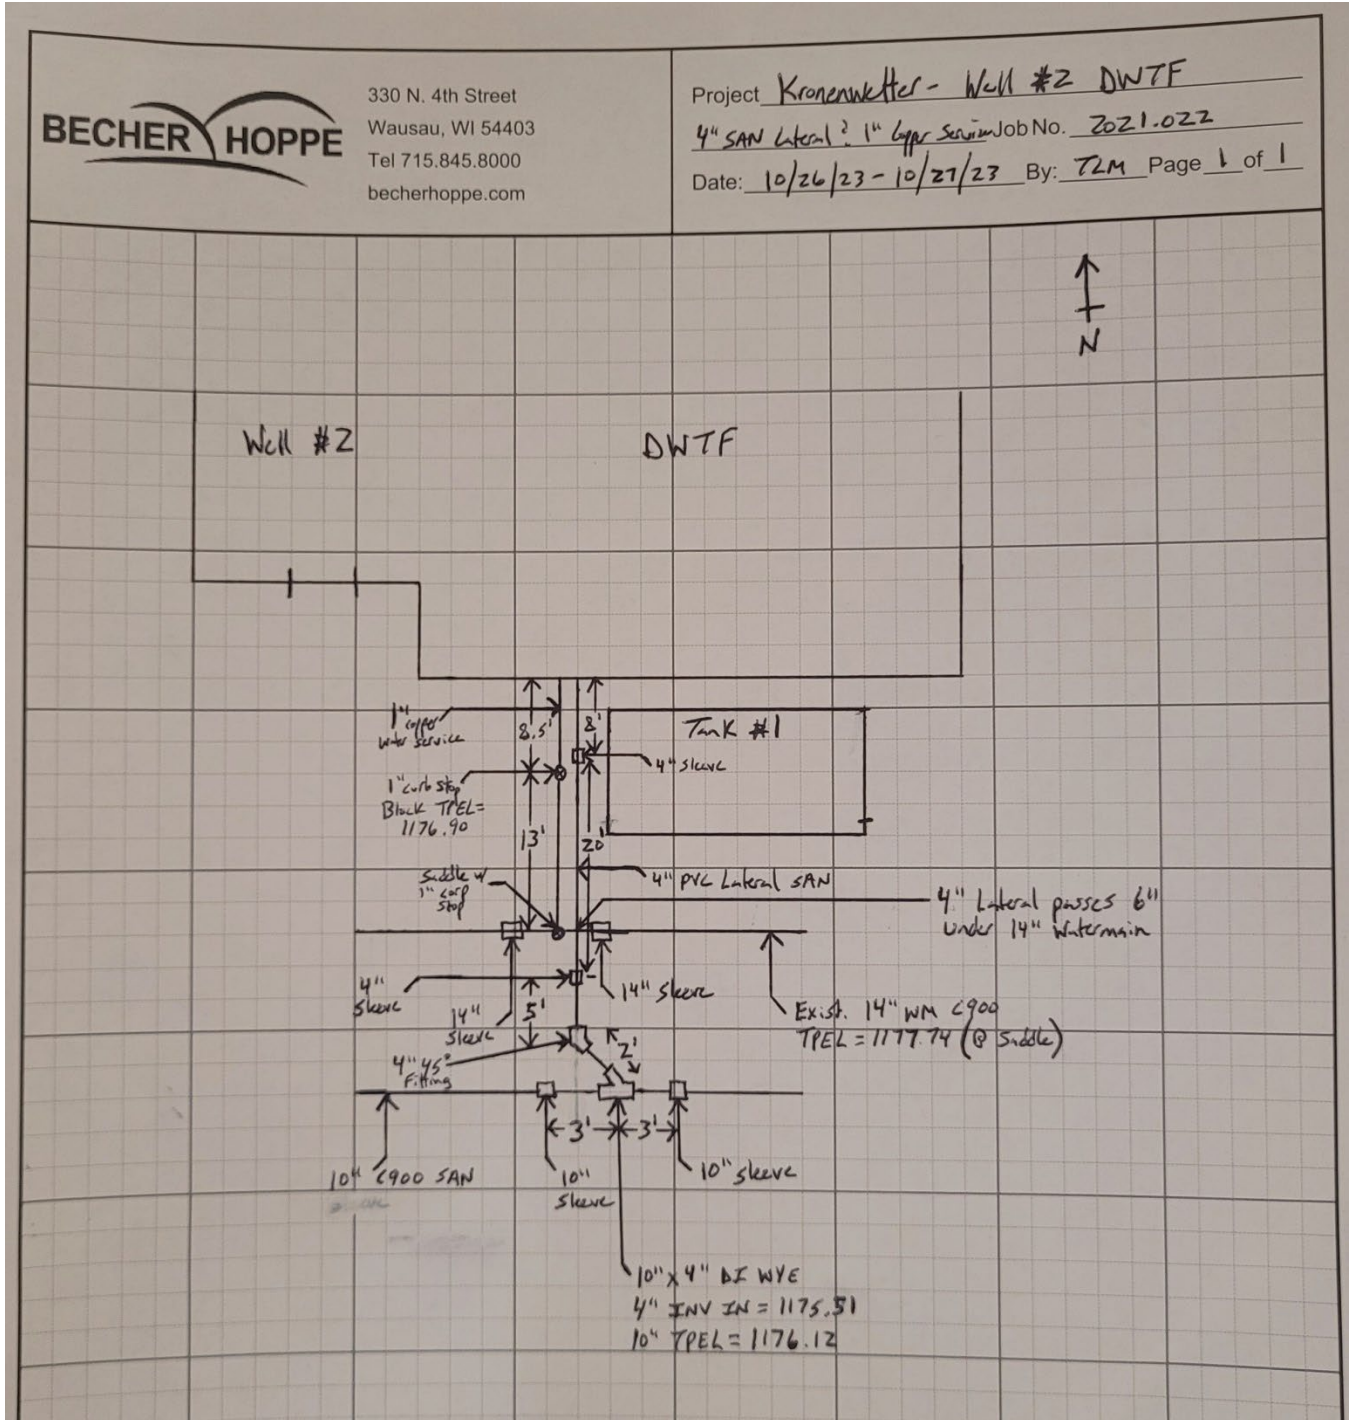 BECHER HOPPE
330 N. 4th Street
Wausau, WI 54403
Tel 715.845.8000
becherhoppe.com
Project Kronenwetter - Well #2 DWTF
4" SAN Lateral & 1" Copper Service Job No. 2021.022
Date: 10/26/23 - 10/27/23 By: TLM Page 1 of 1
N
Well #2
DWTF
1" copper
water service
8.5'
8'
Tank #1
4" sleeve
1" curb stop
Block TPEL=
1176.90
13'
20'
Saddle w/
1" corp
stop
4" PVC Lateral SAN
4" Lateral passes 6"
under 14" watermain
4"
Sleeve
14"
Sleeve
5'
14" Sleeve
Exist. 14" WM C900
TPEL = 1177.74 (@ Saddle)
4" 45°
Fitting
2'
3'
3'
10" C900 SAN
10"
Sleeve
10" sleeve
10" x 4" DI WYE
4" INV IN = 1175.51
10" TPEL = 1176.12